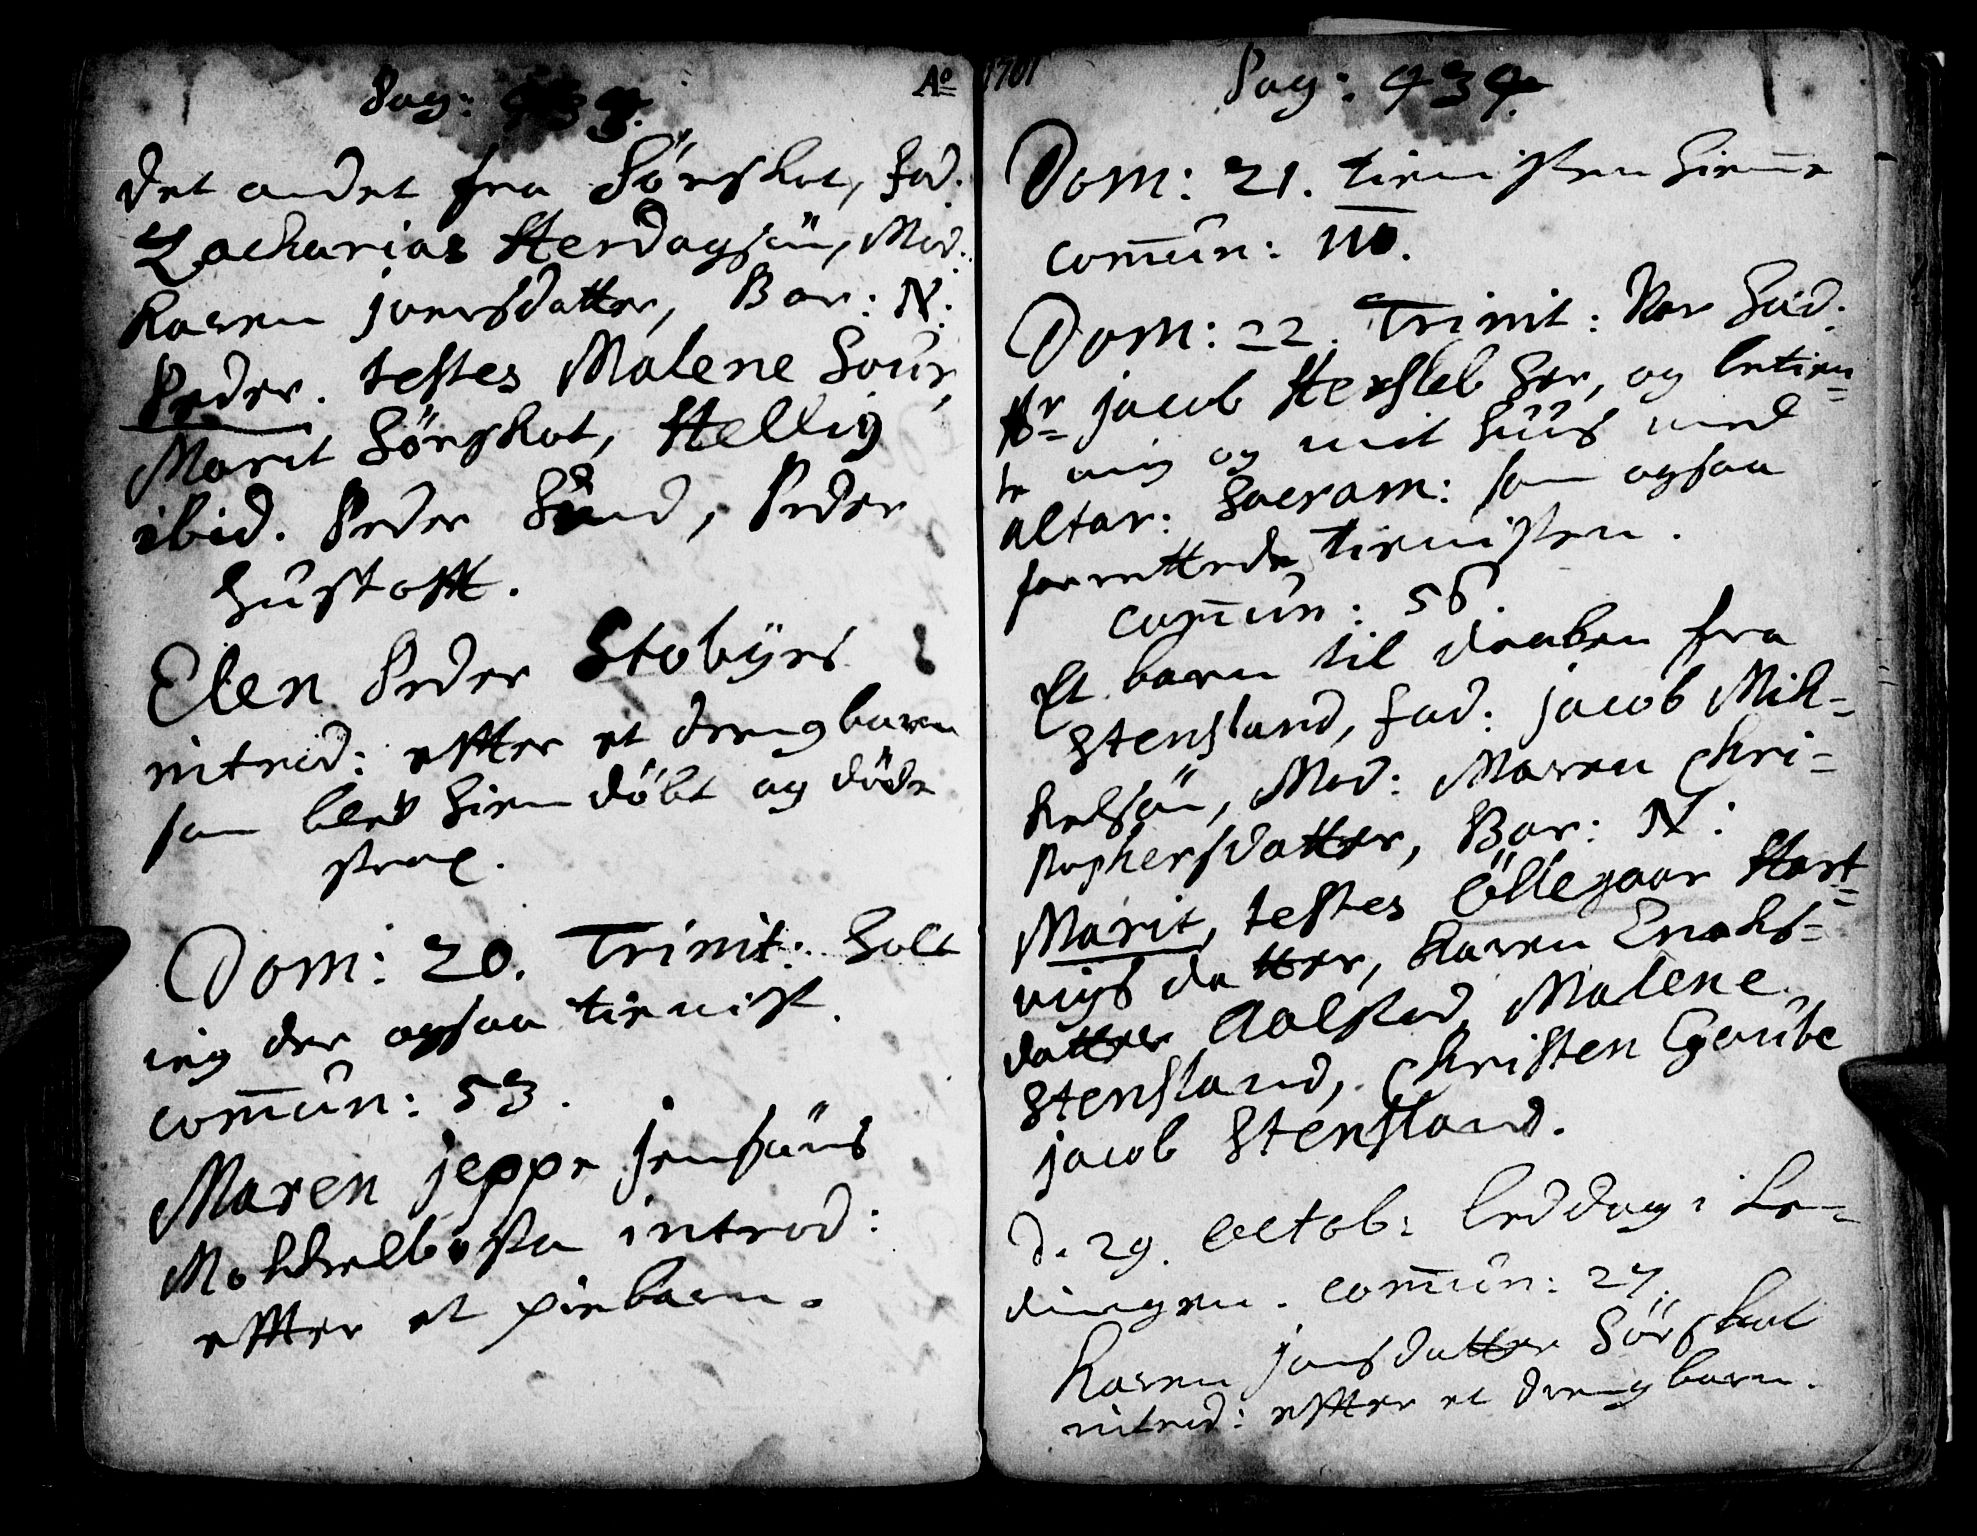 Pag: 433.
det andet fra Sørskot, Fad.
Zacharias Herdagsøn, Mod:
Karen jversdatter, Bar: N:
Peder. testes Malene Sour,
Marit Sørskot, Hellig
ibid. Peder Sund, Peder
Hustoft.
Elen Peder Stobÿes
introd: effter et drengbarn
som blef hiem døbt og døde
strax.
Dom: 20. Trinit: holt
ieg der ogsaa tieniste.
com̄un: 53.
Maren jeppe jensøns
Mokkelbosta introd:
effter et pigebarn.
Ao 1701
Pag: 434.
Dom: 21. tienisten hiem̄e
com̄un: 110.
Dom: 22. Trinit: Var Sud.
Hr jacob Hersleb her, og betien=
te mig og mit huus med
altar: Sacram: som ogsaa
forrettede tienisten.
com̄un: 56.
Et barn til daaben fra
Stensland, Fad: jacob Mik=
kelsøn, Mod: Maren Chri=
stophersdatter, Bar: N:
Marit, testes Ollegaar Hart=
vigs datter, Karen Enoks=
datter Aalstad Malene
Stensland, Christen Gaube
jacob Stensland.
d. 29. Octob: beddag i Lø=
dingen. com̄un: 27.
Karen jonsdatter Sørskot
introd: effter et drengbarn.